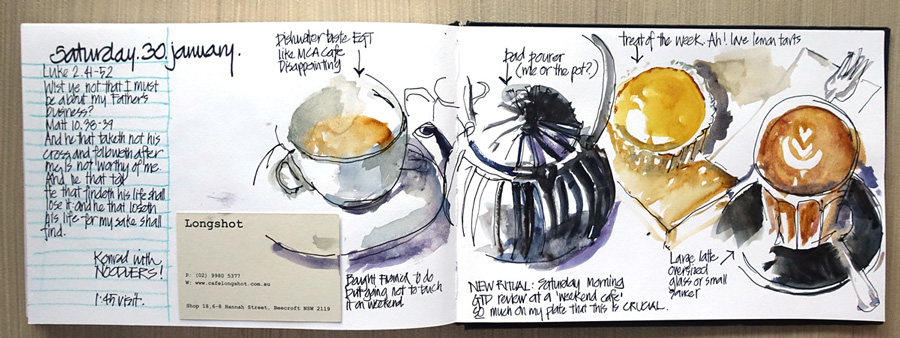 Saturday.30.january.
Luke 2.41-52
Wist ye not that I must
be about my Father's
business?
Matt 10.38-39
And he that taketh not his
cross, and followeth after
me, is not worthy of me.
And he that
He that findeth his life shall
lose it: and he that loseth
his life for my sake shall
find.
Konrad with
NOODLERS!
1:45 visit.
Dishwater taste EGT
like MCA Cafe
Disappointing
Longshot
P: (02) 9980 5377
W: www.cafelongshot.com.au
Shop 18,6-8 Hannah Street, Beecroft NSW 2119
Bought to do
but going not to touch
it on weekend
bad pourer
(me or the pot?)
NEW RITUAL: Saturday Morning
GTD review at a 'weekend cafe'
SO much on my plate that this is CRUCIAL.
treat of the week. Ah! love lemon tarts
Large latte
oversized
glass or small
saucer